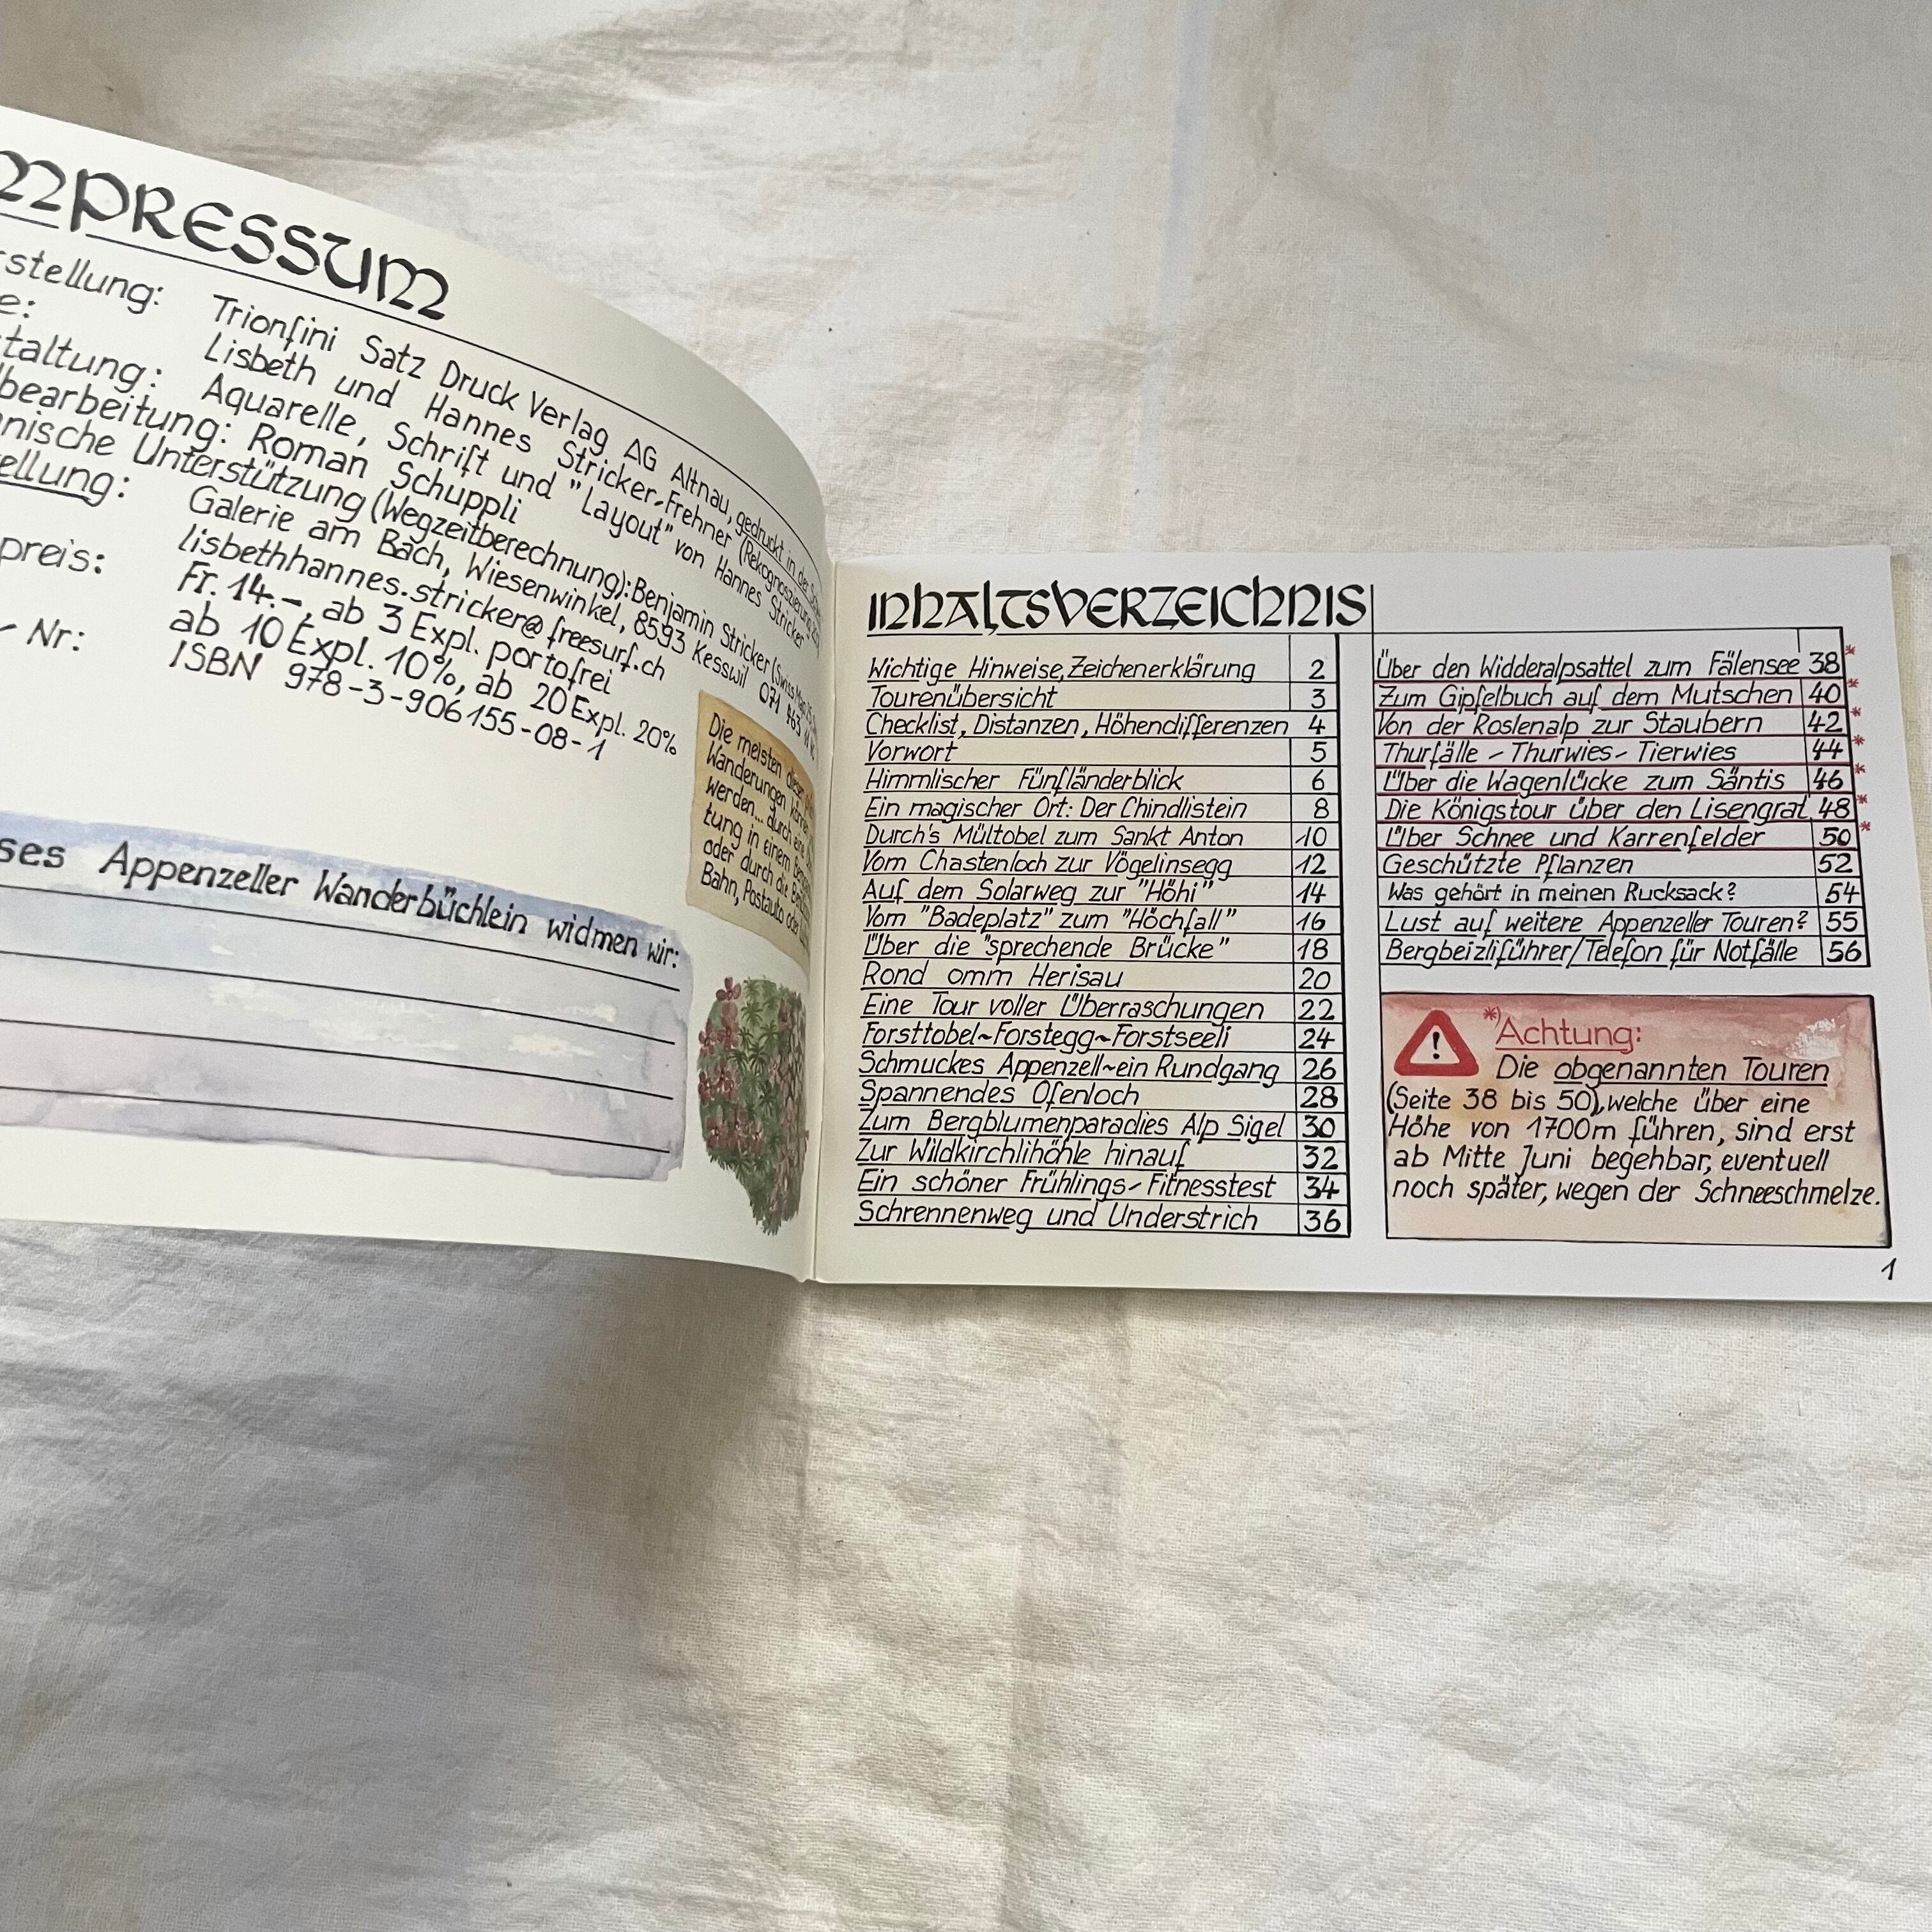 MPRESSUM
stellung: Trionfini Satz Druck Verlag AG Altnau, gedruckt in der
e: Lisbeth und Hannes Stricker-Frehner (Rekognoszierung
taltung: Aquarelle, Schrift und "Layout" von Hannes Stricker
bearbeitung: Roman Schuppli
nische Unterstützung (Wegzeitberechnung): Benjamin Stricker
ellung: Galerie am Bach, Wiesenwinkel, 8593 Kesswil 071 463
lisbethhannes.stricker@freesurf.ch
preis: Fr. 14.-, ab 3 Expl. portofrei
ab 10 Expl. 10%, ab 20 Expl. 20%
- Nr: ISBN 978-3-906155-08-1
Die meisten dieser
Wanderungen
werden... durch eine
tung in einem
oder durch die
Bahn, Postauto oder
ses Appenzeller Wanderbüchlein widmen wir:
INHALTSVERZEICHNIS
Wichtige Hinweise, Zeichenerklärung 2
Tourenübersicht 3
Checklist, Distanzen, Höhendifferenzen 4
Vorwort 5
Himmlischer Fünfländerblick 6
Ein magischer Ort: Der Chindlistein 8
Durch's Mültobel zum Sankt Anton 10
Vom Chastenloch zur Vögelinsegg 12
Auf dem Solarweg zur "Höhi" 14
Vom "Badeplatz" zum "Höchfall" 16
Über die "sprechende Brücke" 18
Rond omm Herisau 20
Eine Tour voller Überraschungen 22
Forsttobel~Forstegg~Forstseeli 24
Schmuckes Appenzell~ein Rundgang 26
Spannendes Ofenloch 28
Zum Bergblumenparadies Alp Sigel 30
Zur Wildkirchlihöhle hinauf 32
Ein schöner Frühlings-Fitnesstest 34
Schrennenweg und Understrich 36
Über den Widderalpsattel zum Fälensee 38*
Zum Gipfelbuch auf dem Mutschen 40*
Von der Roslenalp zur Staubern 42*
Thurfälle - Thurwies - Tierwies 44*
Über die Wagenlücke zum Säntis 46*
Die Königstour über den Lisengrat 48*
Über Schnee und Karrenfelder 50*
Geschützte Pflanzen 52
Was gehört in meinen Rucksack? 54
Lust auf weitere Appenzeller Touren? 55
Bergbeizliführer/Telefon für Notfälle 56
! *) Achtung:
Die obgenannten Touren
(Seite 38 bis 50), welche über eine
Höhe von 1700m führen, sind erst
ab Mitte Juni begehbar, eventuell
noch später, wegen der Schneeschmelze.
1